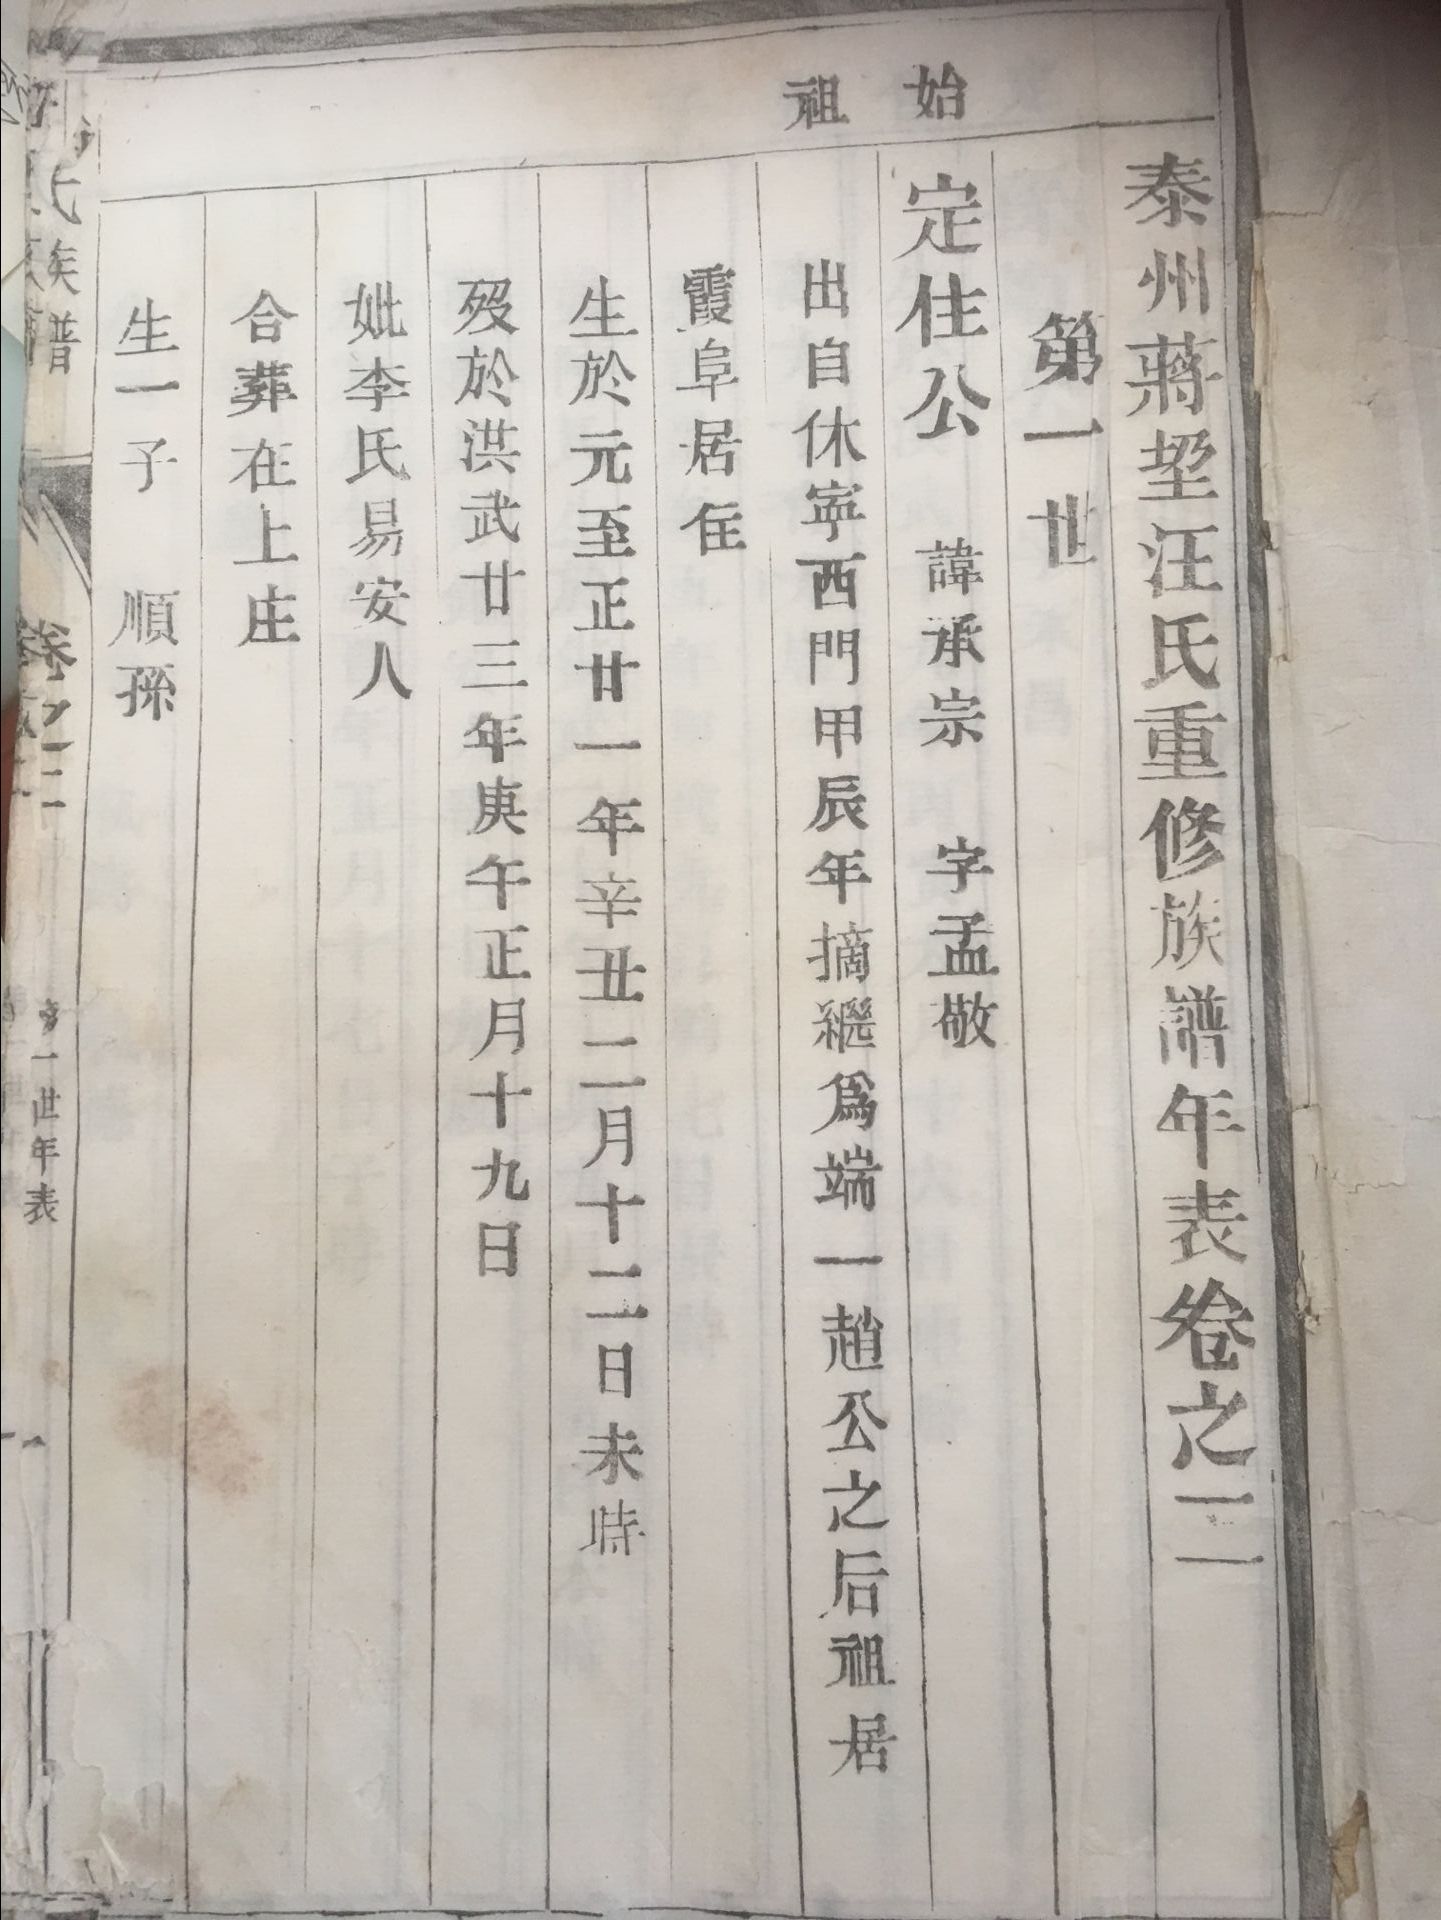 泰州蔣垈汪氏重修族譜年表卷之二
第一世
始祖
定住公 諱承宗 字孟敬
出自休寧西門甲辰年摘繼爲端一趙公之后祖居
霞阜居住
生於元至正廿一年辛丑二月十二日未時
歿於洪武廿三年庚午正月十九日
妣李氏易安人
合葬在上庄
生一子 順孫
氏族譜
卷之二
一世年表
一